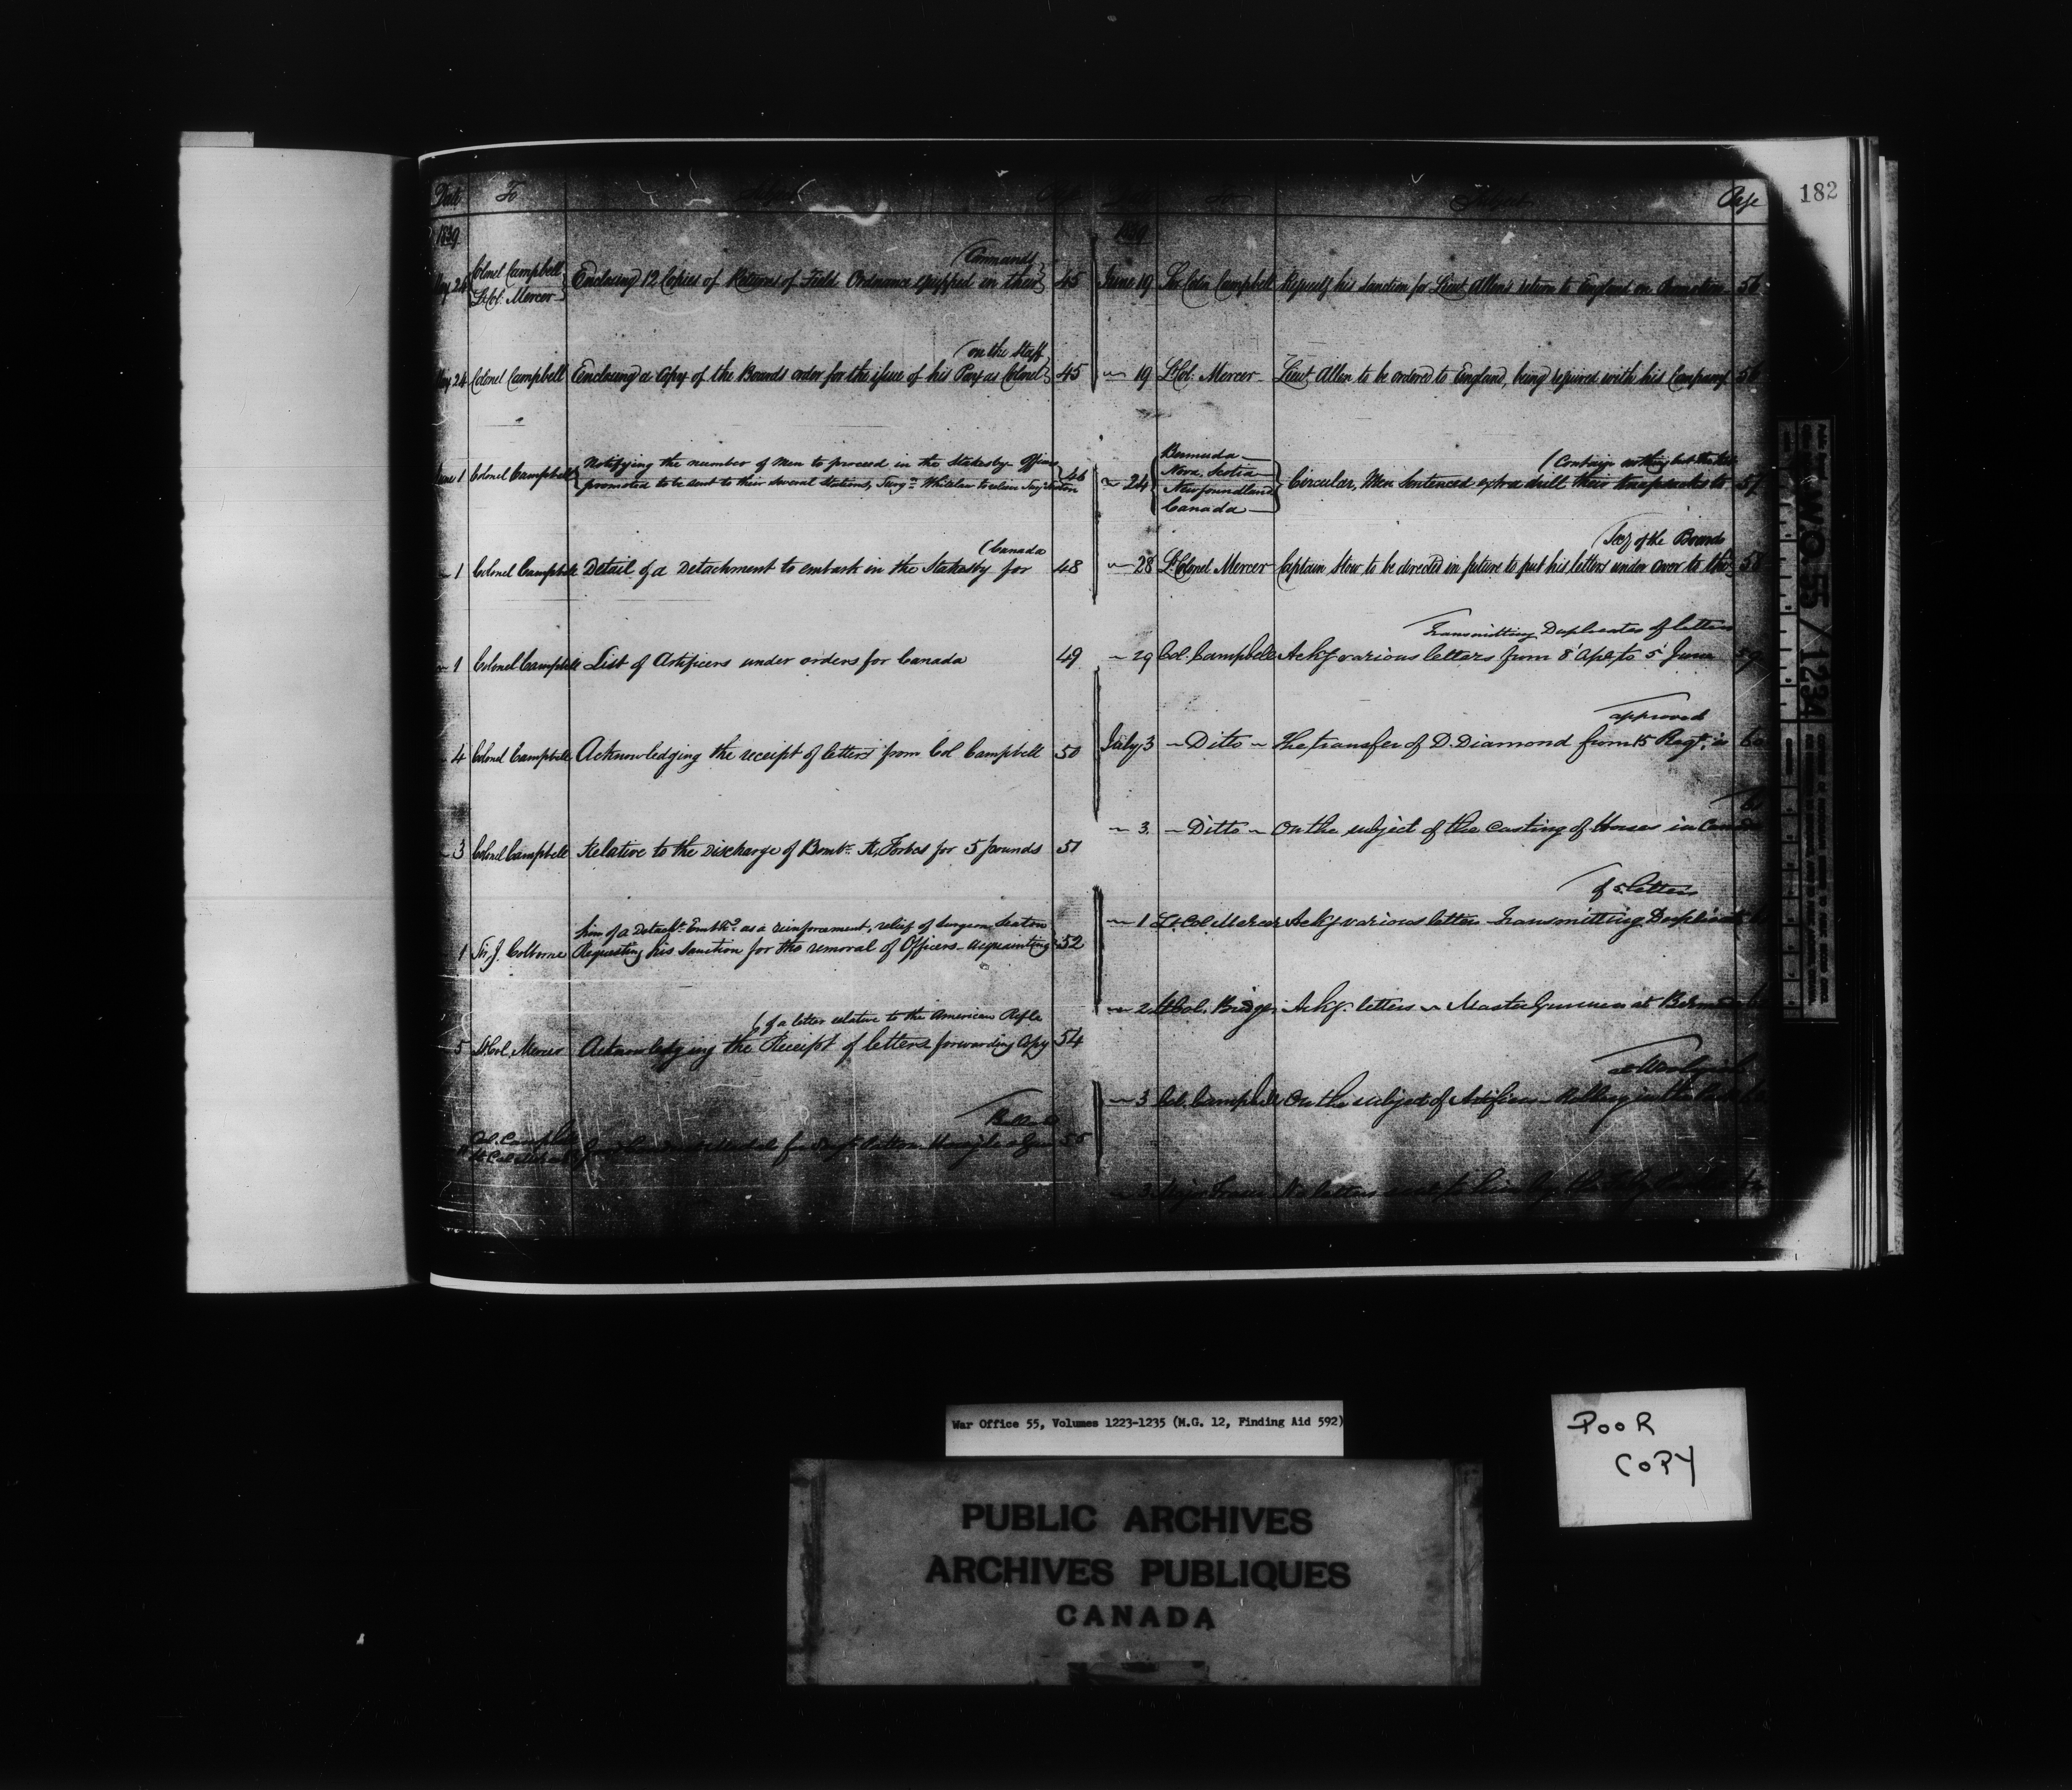 182
Date To Subject Page
1839
(Commands
May 24 Colonel Campbell Lt Col. Mercer Enclosing 12 Copies of Returns of Field Ordnance equipped in their 45
(on the Staff
May 24 Colonel Campbell Enclosing a Copy of the Boards order for the issue of his Pay as Colonel 45
June 1 Colonel Campbell Notifying the number of Men to proceed in the Stakesby Officers 46
promoted to be sent to their several Stations, Surgn Whitelaw to relieve
(Canada
~ 1 Colonel Campbell Detail of a Detachment to embark in the Stakesby for 48
~ 1 Colonel Campbell List of Artificers under orders for Canada 49
~ 4 Colonel Campbell Acknowledging the receipt of letters from Col Campbell 50
~ 3 Colonel Campbell Relative to the discharge of Bombr. Forbes for 5 pounds 51
him of a Detacht. Embkn. as a reinforcement, relief of Surgeon Seaton
1 Sir J. Colborne Requesting his Sanction for the removal of Officers - acquainting 52
(of a letter relative to the American Rifle
5 Lt Col. Mercer Acknowledging the Receipt of letters forwarding Copy 54
Col. Campbell
Lt Col Mercer 55
Subject Page
1839
June 19 Sir Colin Campbell Requests his Sanction for Lieut Allens return to England on Promotion 56
~ 19 Lt Col. Mercer Lieut Allen to be ordered to England, being required with his Company 56
Bermuda
Nova Scotia (Contain nothing but the
~ 24 Newfoundland Circular, Men Sentenced extra drill their knapsacks to 57
Canada
(Secy of the Board
~ 28 Lt Colonel Mercer Captain Stow to be directed in future to put his letters under cover to the 58
Transmitting Duplicates of letters
~ 29 Col. Campbell Ackg various letters from 8 Apl to 5 June 59
approved
July 3 ~ Ditto ~ the transfer of D. Diamond from 15 Regt. is 60
~ 3. ~ Ditto ~ On the subject of the Casting of Horses in Canada
of 5 letters
~ 1 Lt Col Mercer Ackg various letters Transmitting Duplicate
~ 2 Lt Col. Ackg. letters ~ Master Gunners at Bermuda
at Woolwich
~ 3 Col. Campbell On the subject of Artificers
~ 3 Major No letters
WO 55/1234
War Office 55, Volumes 1223-1235 (M.G. 12, Finding Aid 592)
POOR
COPY
PUBLIC ARCHIVES
ARCHIVES PUBLIQUES
CANADA